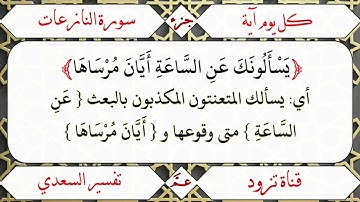 كل يوم آية
جزء
سورة النازعات
﴿يَسْأَلُونَكَ عَنِ السَّاعَةِ أَيَّانَ مُرْسَاهَا﴾
أي: يسألك المتعنتون المكذبون بالبعث { عَنِ
السَّاعَةِ } متى وقوعها و { أَيَّانَ مُرْسَاهَا }
قناة تزود
عمَّ
تفسير السعدي